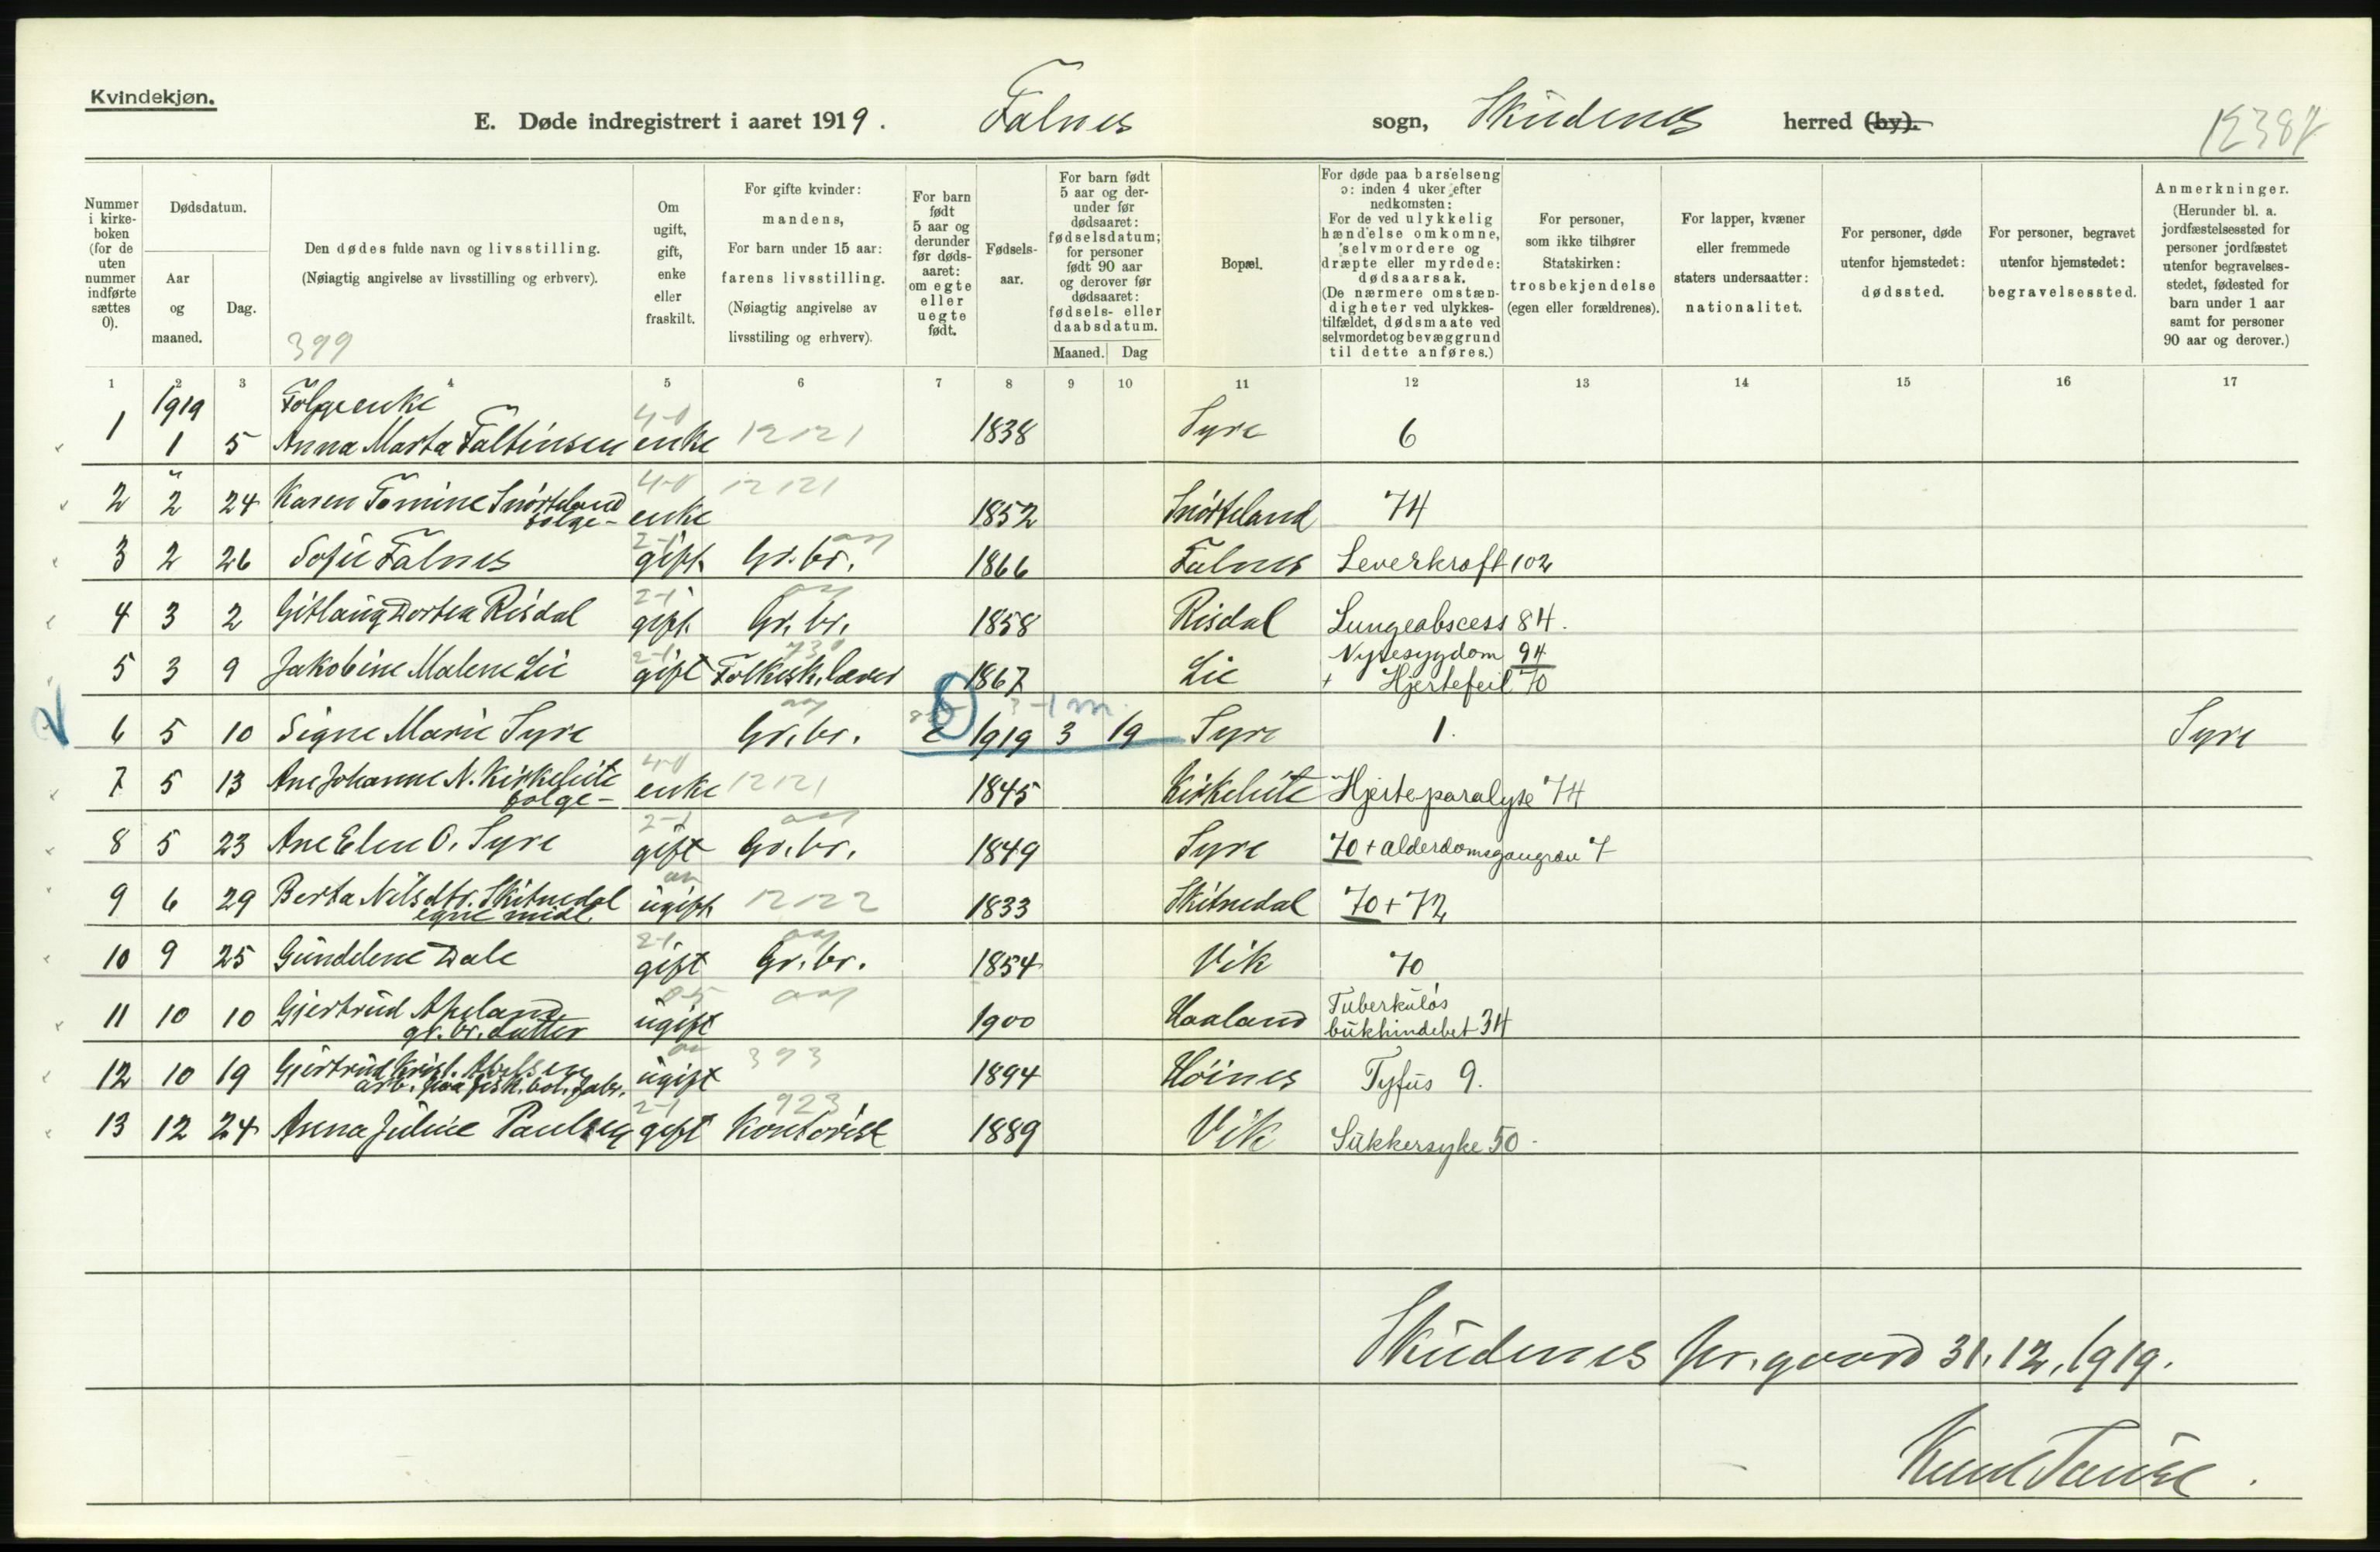 Kvindekjøn.
E. Døde indregistrert i aaret 1919. Falnes sogn, Skudenes herred (by).
Nummer i kirke-boken (for de uten nummer indførte sættes 0).
Dødsdatum.
Aar og maaned.
Dag.
Den dødes fulde navn og livsstilling.
(Nøiagtig angivelse av livsstilling og erhverv).
399
Om ugift, gift, enke eller fraskilt.
For gifte kvinder: mandens,
For barn under 15 aar: farens livsstilling.
(Nøiagtig angivelse av livsstiling og erhverv).
For barn født 5 aar og derunder før døds-aaret: om egte eller uegte født.
Fødsels-aar.
For barn født 5 aar og der-under før dødsaaret: fødselsdatum; for personer født 90 aar og derover før dødsaaret: fødsels- eller daabsdatum.
Maaned. Dag
Bopæl.
For døde paa barselseng ɔ: inden 4 uker efter nedkomsten:
For de ved ulykkelig hændelse omkomne, selvmordere og dræpte eller myrdede: dødsaarsak.
(De nærmere omstæn-digheter ved ulykkes-tilfældet, dødsmaate ved selvmordet og bevæggrund til dette anføres.)
For personer, som ikke tilhører Statskirken: trosbekjendelse (egen eller forældrenes).
For lapper, kvæner eller fremmede staters undersaatter: nationalitet.
For personer, døde utenfor hjemstedet: dødssted.
For personer, begravet utenfor hjemstedet: begravelsessted.
Anmerkninger.
(Herunder bl. a. jordfæstelsessted for personer jordfæstet utenfor begravelses-stedet, fødested for barn under 1 aar samt for personer 90 aar og derover.)
1 2 3 4 5 6 7 8 9 10 11 12 13 14 15 16 17
1919 Folgeenke 4-0
1 1 5 Anna Marta Faltinsen enke 12121 1838 Syre 6
" 4-0 12121
2 2 24 Karen Tomine Snörteland folge- enke 1852 Snörteland 74
2-1
3 2 26 Sofie Falnes gift Gr.br. 1866 Falnes Leverkræft 102
2-1
4 3 2 Gitlaug Dortea Risdal gift Gr.br. 1858 Risdal Lungeabscess 84.
2-1 730
5 3 9 Jakobine Malene Lie gift Folkesk.lærer 1867 Lie Nyresygdom 94 + Hjertefeil 70
6 5 10 Signe Marie Syre Gr.br. e 1919 3 19 Syre 1. Syre
4-0
7 5 13 Ane Johanne N. Kirkeleite folge- enke 12121 1845 Kirkeleite Hjerteparalyse 74
2-1
8 5 23 Ane Elen O. Syre gift Gr.br. 1849 Syre 70 + alderdomsgangræn 7
9 6 29 Berta Nilsdtr. Skitnedal egne midl. ugift 12122 1833 Skitnedal 70 + 72
2-1
10 9 25 Gundelene Dale gift Gr.br. 1854 Vik 70
11 10 10 Gjertrud Apeland gr.br.datter ugift 1900 Haaland Tuberkuløs bukhindebet 34
12 10 19 Gjertrud Krist. Abelsen arb. paa fisk.bol.fabr. ugift 393 1894 Höines Tyfus 9.
2-1 923
13 12 24 Anna Juline Paulsen gift Kontorist 1889 Vik Sukkersyke 50.
Skudenes pr.gaard 31.12.1919.